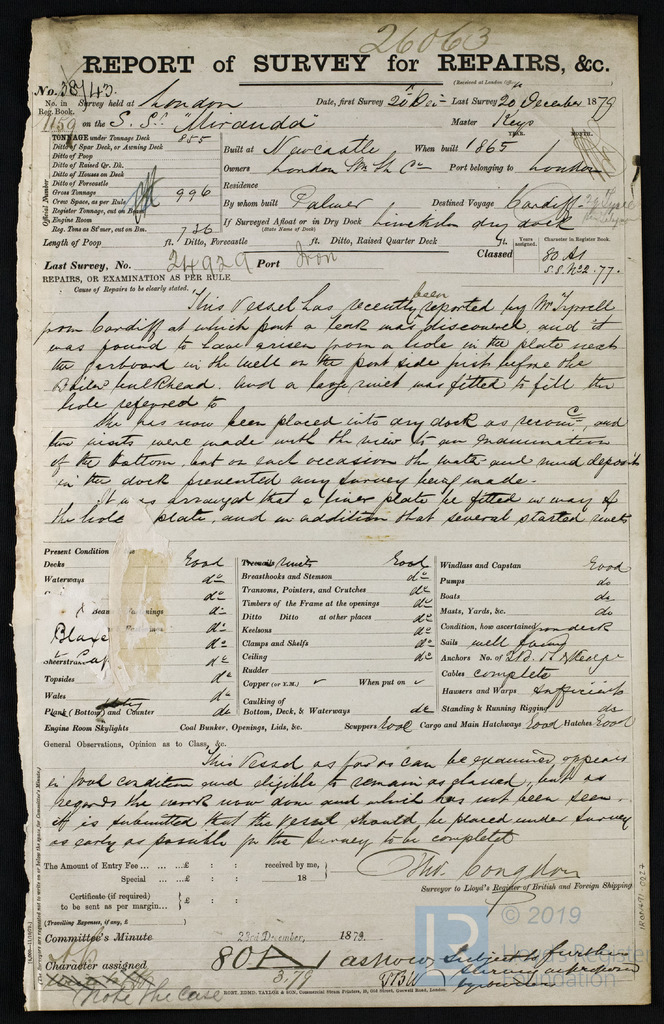 26063
REPORT of SURVEY for REPAIRS, &c.
(Received at London Office
No. 38/43.
No. in Reg. Book. Survey held at London Date, first Survey 20 Dec Last Survey 20 December 1879
1159 on the S. S. "Miranda" Master Keys
TONNAGE under Tonnage Deck 855
Ditto of Spar Deck, or Awning Deck
Ditto of Poop
Ditto of Raised Qr. Dk.
Ditto of Houses on Deck
Ditto of Forecastle
Gross Tonnage 996
Crew Space, as per Rule
Register Tonnage, cut on Beam
Engine Room
Reg. Tons as St'mer, cut on Bm. 736
Official Number
YEAR. MONTH.
Built at Newcastle When built 1865
Owners London Port belonging to London
Residence
By whom built Palmer Destined Voyage Cardiff
If Surveyed Afloat or in Dry Dock Limekiln dry dock
(State Name of Dock)
Length of Poop ft. Ditto, Forecastle ft. Ditto, Raised Quarter Deck ft.
Years assigned. Character in Register Book.
Last Survey, No. 24929 Port Iron Classed 80 A1
S.S. No 2-77.
REPAIRS, OR EXAMINATION AS PER RULE
Cause of Repairs to be clearly stated.
This Vessel has recently been reported by Mr Tyrrell
from Cardiff at which port a leak was discovered, and it
was found to have arisen from a hole in the plate next
the garboard in the well on the port side just before the
Boiler bulkhead. And a large rivet was fitted to fill the
hole referred to
She has now been placed into dry dock as recomd, and
two visits were made with the view to an examination
of the bottom, but on each occasion the water and mud deposits
in the dock prevented any survey being made.
It was arranged that a liner plate be fitted in way of
the hole plate, and in addition that several started rivets
Present Condition
Decks Good
Waterways do
do
Beam do
do
Sheerstrake do
Topsides do
Wales do
Plank (Bottom) and Counter do
Engine Room Skylights
Rivets Good
Breasthooks and Stemson do
Transoms, Pointers, and Crutches do
Timbers of the Frame at the openings do
Ditto Ditto at other places do
Keelsons do
Clamps and Shelfs do
Ceiling do
Rudder
Copper (or Y.M.) ✓ When put on ✓
Caulking of
Bottom, Deck, & Waterways do
Coal Bunker, Openings, Lids, &c. Scuppers Good
Windlass and Capstan Good
Pumps do
Boats do
Masts, Yards, &c. do
Condition, how ascertained from deck
Sails well found
Anchors No. of
Cables complete
Hawsers and Warps sufficient
Standing & Running Rigging do
Cargo and Main Hatchways Good Hatches Good
General Observations, Opinion as to Class, &c.
This Vessel as far as can be examined appears
in good condition and eligible to remain as classed, but as
regards the work now done and which has not been seen.
it is submitted that the vessel should be placed under survey
as early as possible for the survey to be completed
The Amount of Entry Fee ... £ : : received by me,
Special ... £ : : 18
Certificate (if required) to be sent as per margin... £ : :
(Travelling Expenses, if any, £ )
Thos. Congdon
Surveyor to Lloyd's Register of British and Foreign Shipping
Committee's Minute 23rd December, 1879.
Character assigned 80 A 1 as now, subject to further
3.79 survey as proposed
Note the case
ROBT. EDMD. TAYLOR & SON, Commercial Steam Printers, 19, Old Street, Goswell Road, London.
(The Surveyors are requested not to write on or below the space for Committee's Minute.)
IRON491-0027
LR
© 2019
Lloyd's Register
Foundation